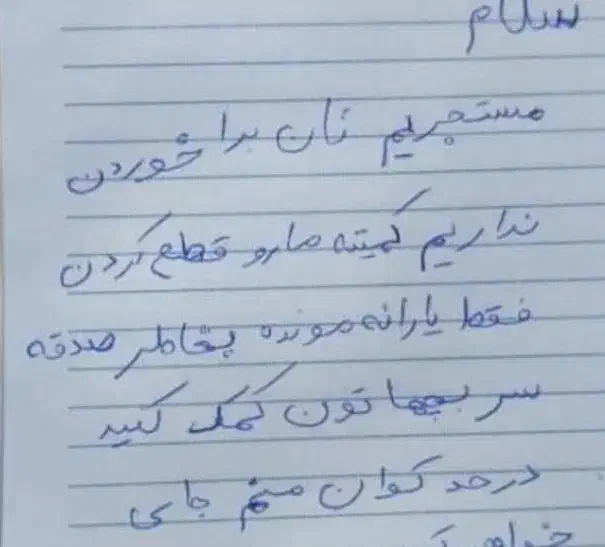 سلام
مستجریم نان برا خوردن
نداریم کمیته مارو قطع کردن
فقط یارانه مونده بخاطر صدقه
سر بچهاتون کمک کنید
درحد توان منم جای